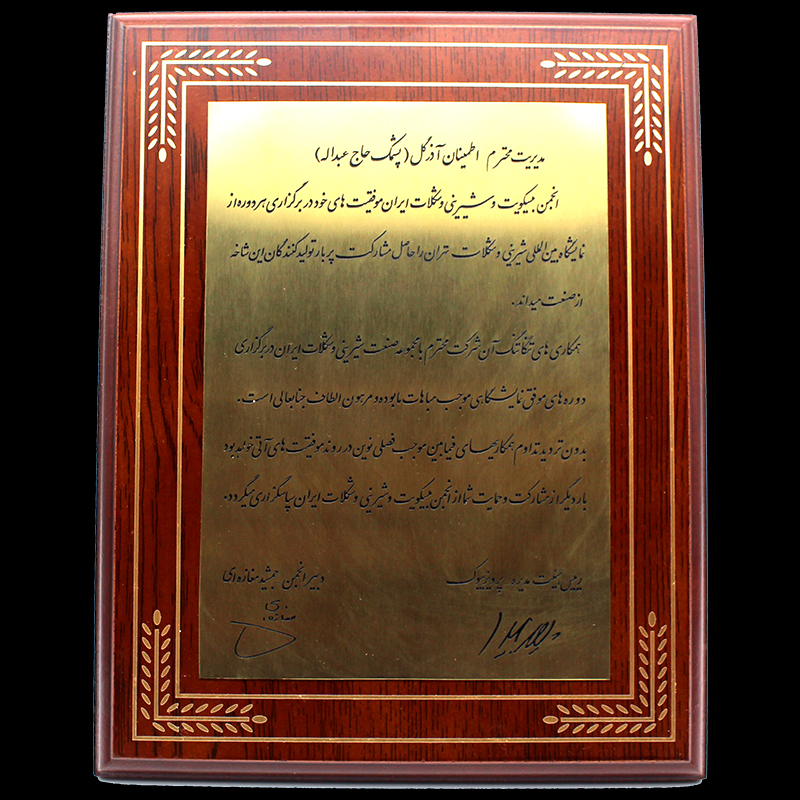 مدیریت محترم اطمینان آذر گل (پشمک حاج عبداله)
انجمن بیسکویت و شیرینی و شکلات ایران موفقیت های خود در برگزاری هر دوره از
نمایشگاه بین المللی شیرینی و شکلات تهران را حاصل مشارکت پر بار تولید کنندگان این شاخه
از صنعت میداند.
همکاری های تنگاتنگ آن شرکت محترم با مجموعه صنعت شیرینی و شکلات ایران در برگزاری
دوره های موفق نمایشگاهی موجب مباهات ما بوده و مرهون الطاف جنابعالی است.
بدون تردید تداوم همکاریهای فیمابین موجب فصلی نوین در روند موفقیت های آتی خواهد بود
بار دیگر از مشارکت و حمایت شما از انجمن بیسکویت و شیرینی و شکلات ایران سپاسگزاری میگردد.
رییس هیئت مدیره پرویز بیوک دبیر انجمن جمشید مغازه ای